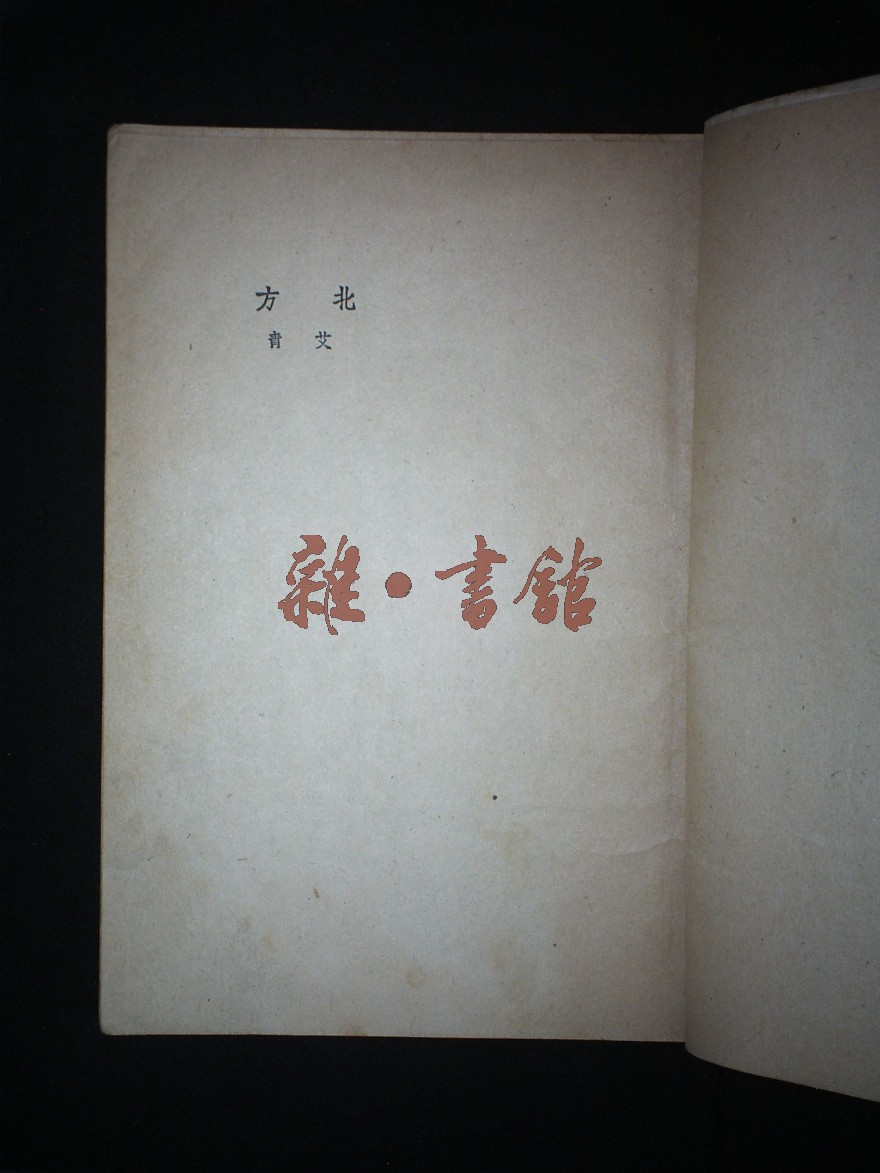 北方
艾青
雜·書館